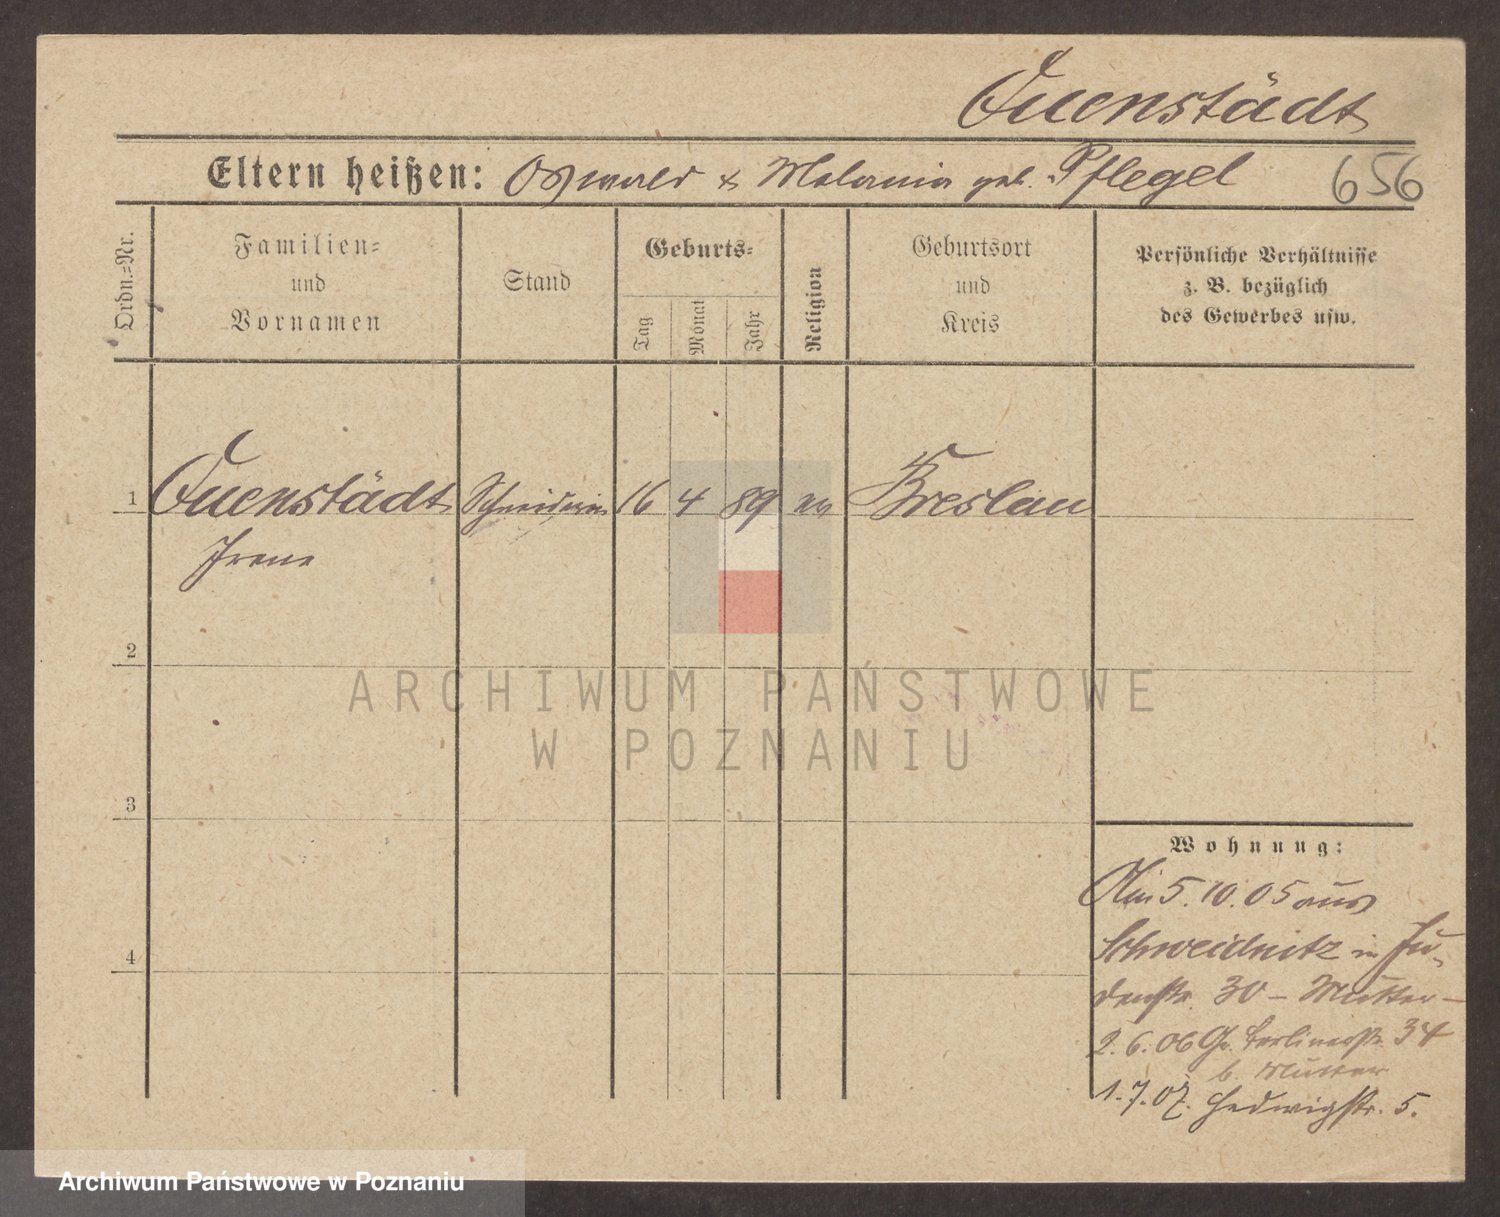 Quenstädt
Eltern heißen: Oswald & Melania geb. Pflegel 656
Ordn.=Nr.
Familien=
und
Vornamen
Stand
Geburts=
Tag
Monat
Jahr
Religion
Geburtsort
und
Kreis
Persönliche Verhältnisse
z. B. bezüglich
des Gewerbes usw.
1 Quenstädt Schneiderin 16 4 89 ev Breslau
Irene
2
3
4
Wohnung:
Am 5. 10. 05 aus
Schweidnitz in Ju-
denstr. 30 – Mutter –
2. 6. 06 Gr. Berlinerstr. 34
b. Mutter
1. 7. 07. Hedwigstr. 5.
ARCHIWUM PAŃSTWOWE
W POZNANIU
Archiwum Państwowe w Poznaniu